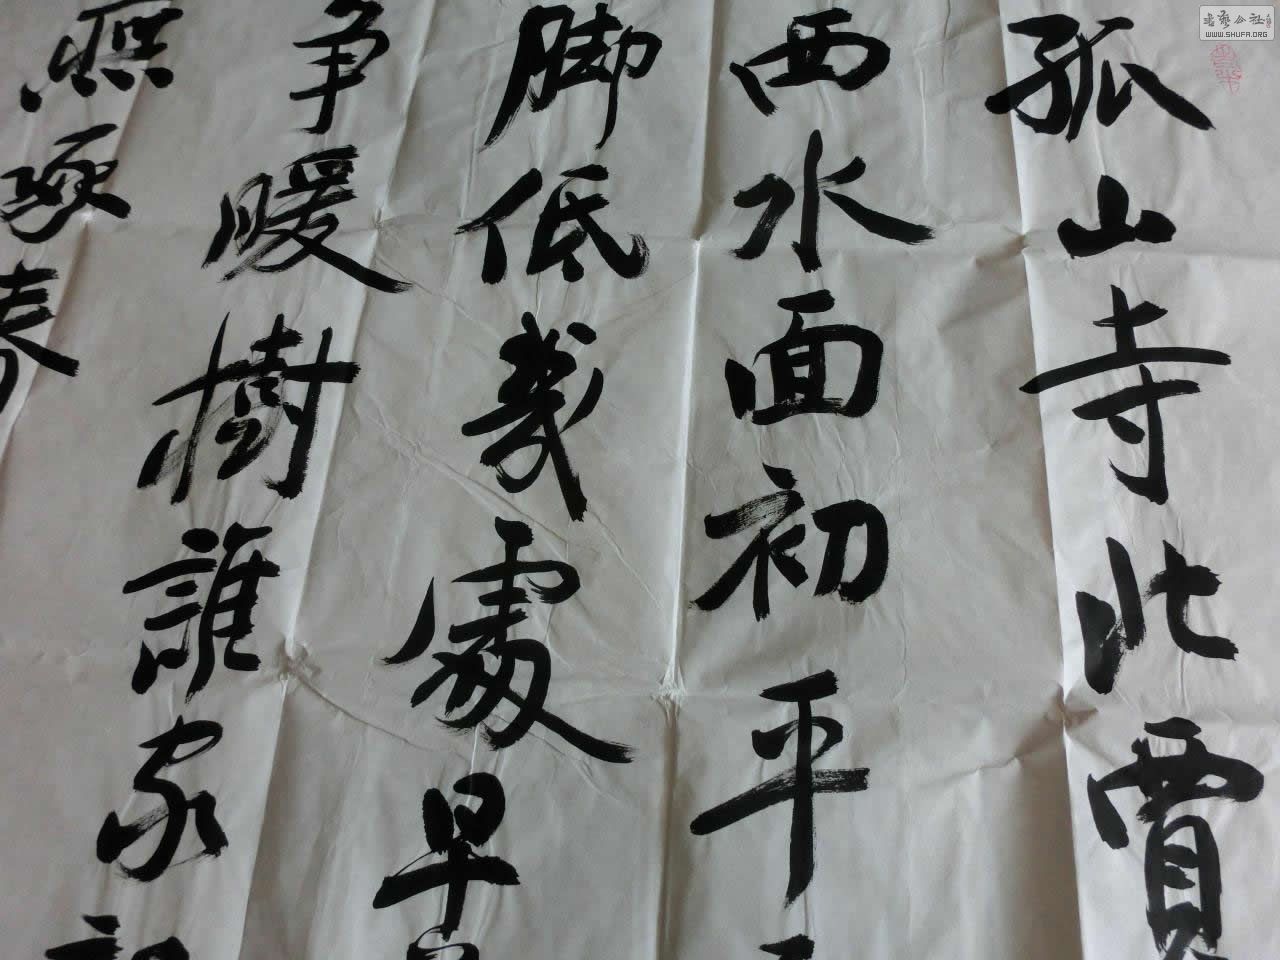 孤山寺北賈
西水面初平
脚低幾處早
争暖樹誰家
燕啄春
书艺公社
WWW.SHUFA.ORG